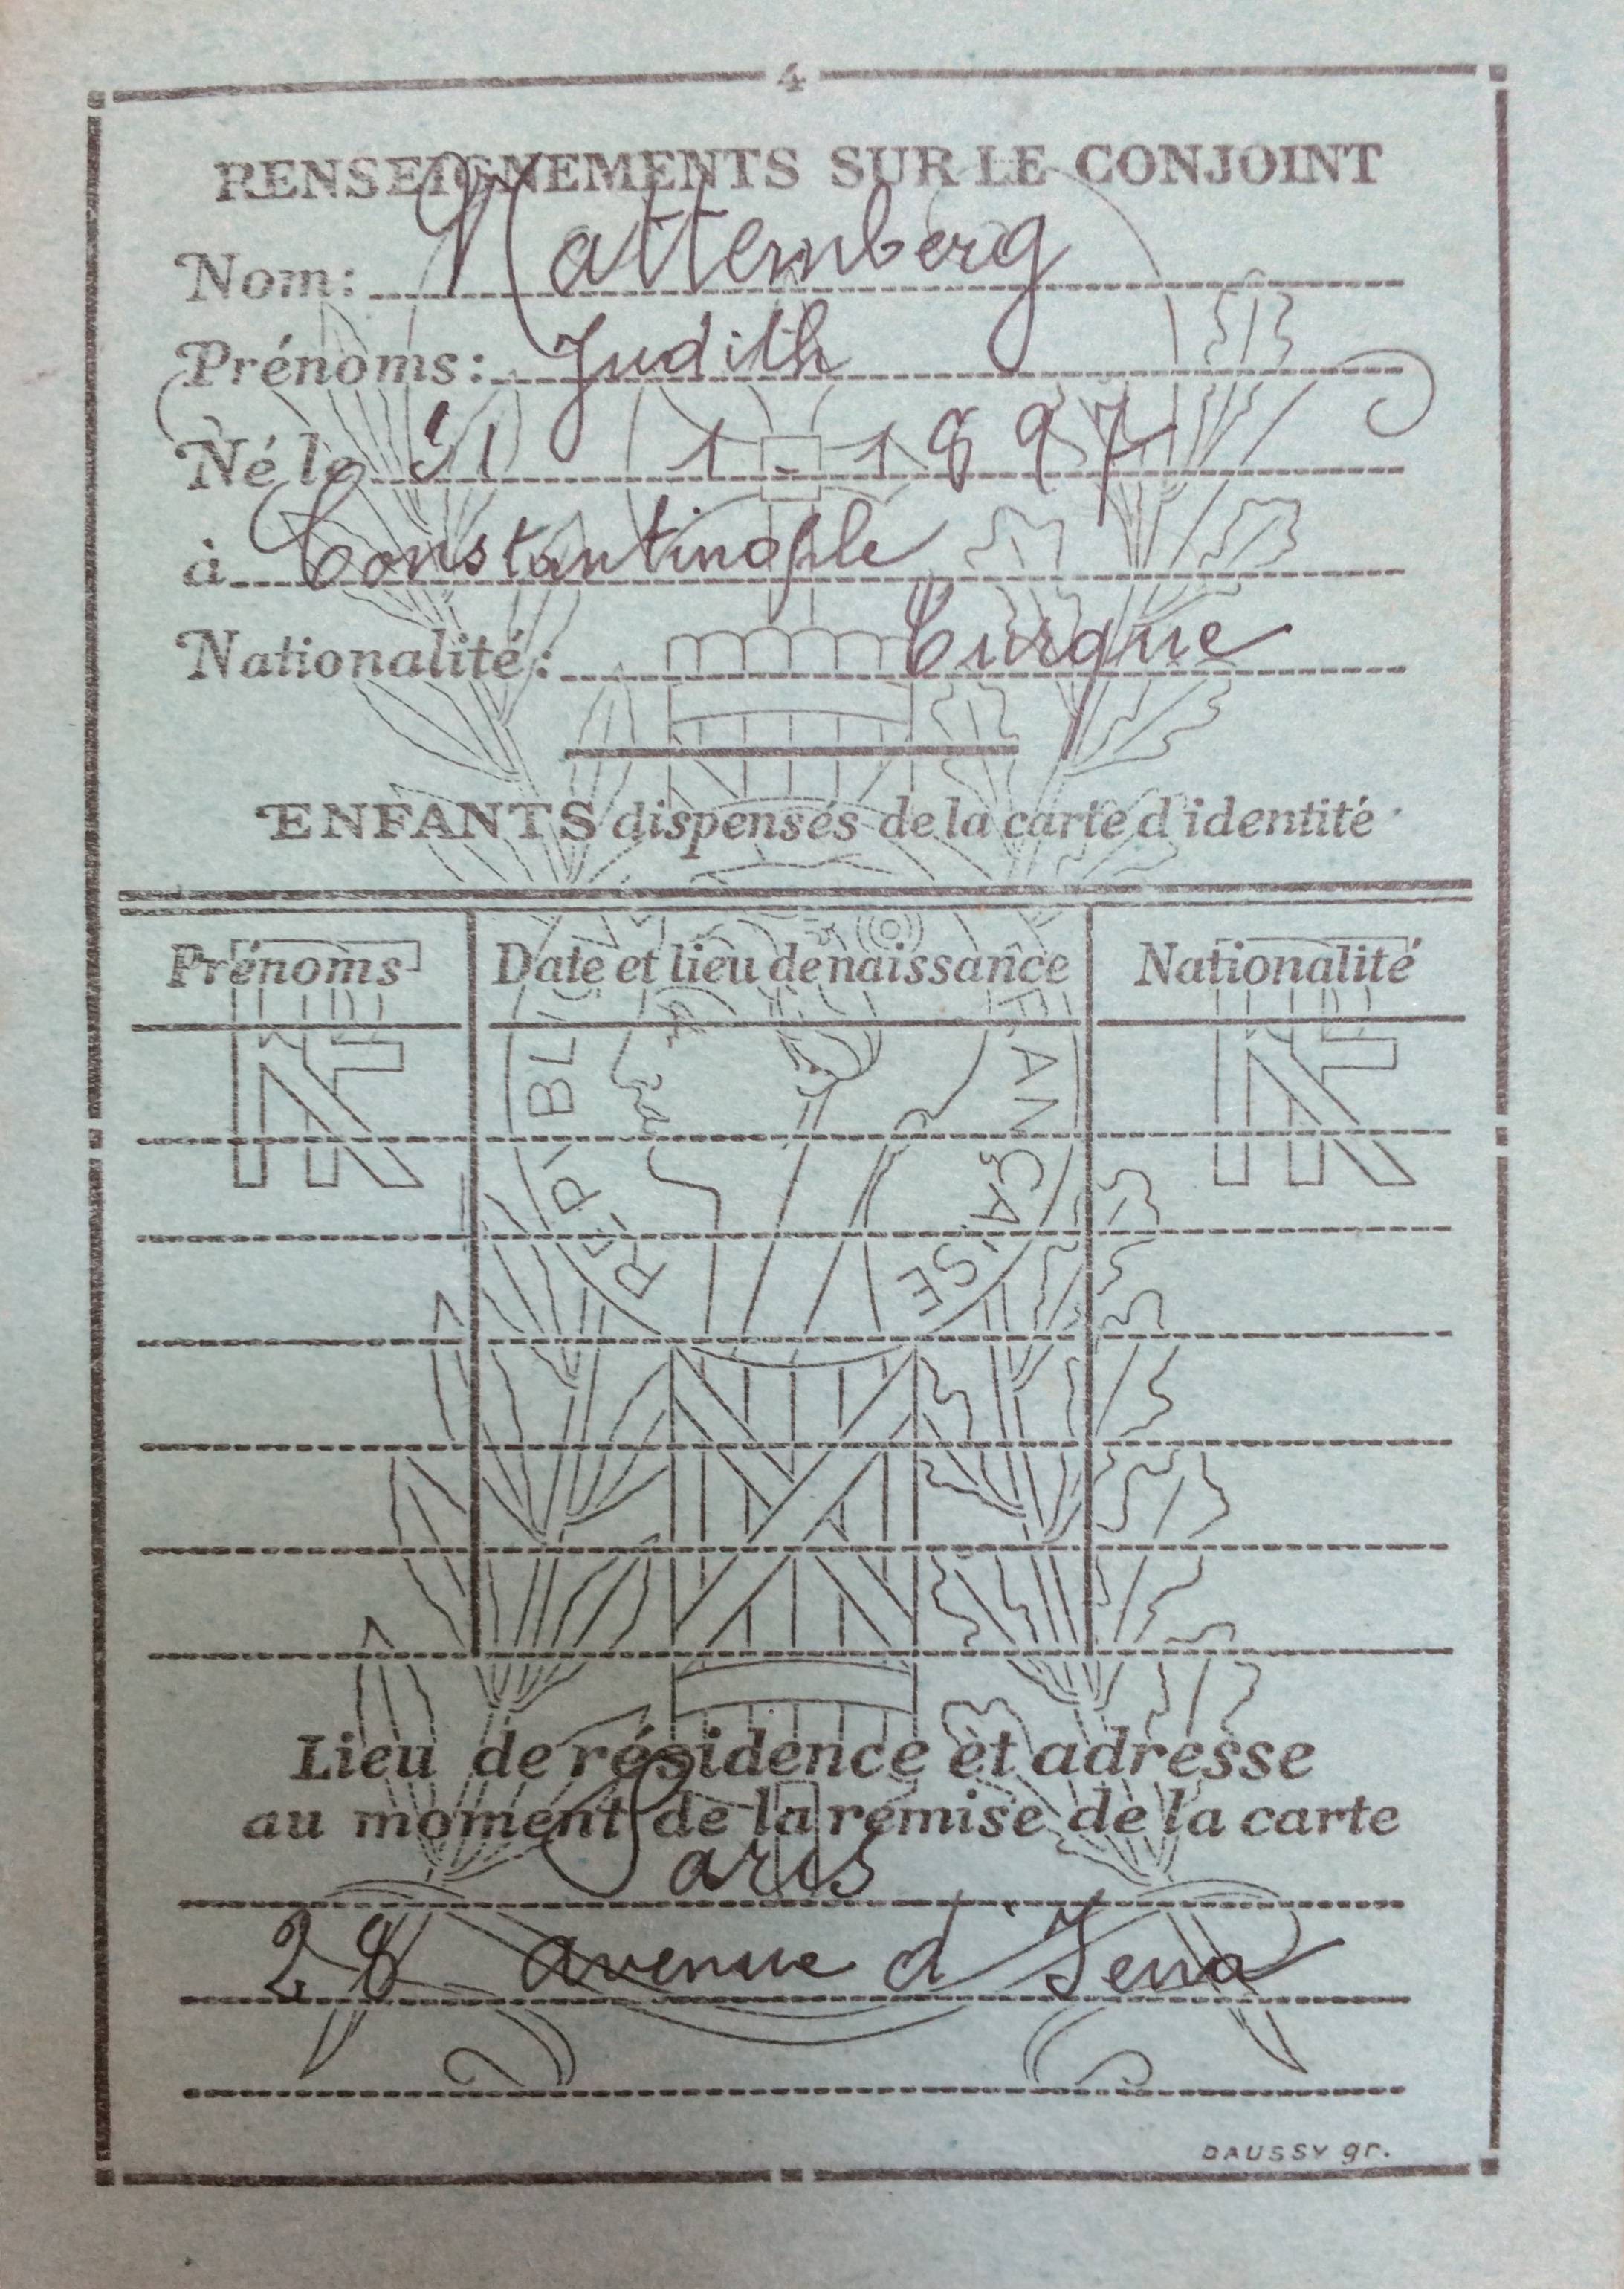 4
RENSEIGNEMENTS SUR LE CONJOINT
Nom: Nattemberg
Prénoms: Judith
Né le 1 - 1897
à Constantinople
Nationalité: Turque
ENFANTS dispensés de la carte d'identité
Prénoms Date et lieu de naissance Nationalité
RF RÉPUBLIQUE FRANÇAISE RF
Lieu de résidence et adresse
au moment de la remise de la carte
Paris
28 avenue d'Iena
DAUSSY gr.